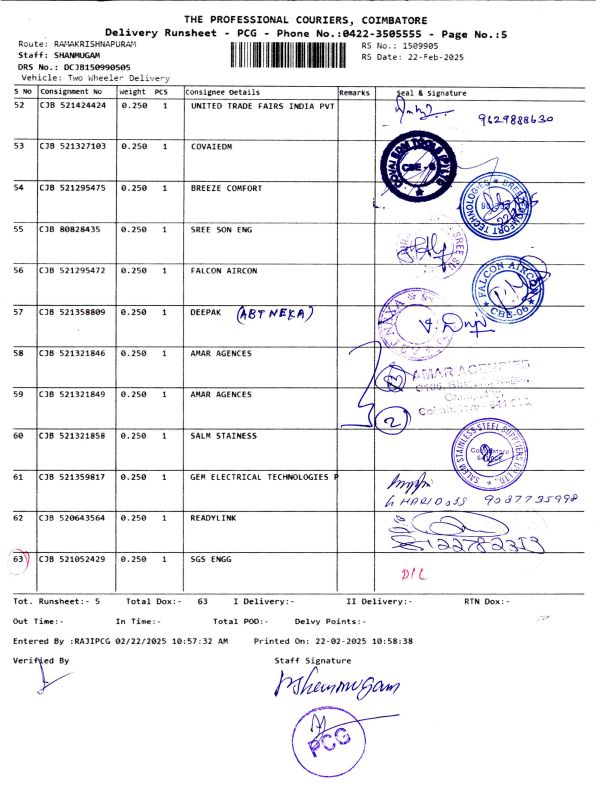 THE PROFESSIONAL COURIERS, COIMBATORE
Delivery Runsheet - PCG - Phone No.:0422-3505555 - Page No.:5
Route: RAMAKRISHNAPURAM
RS No.: 1509905
Staff: SHANMUGAM
RS Date: 22-Feb-2025
DRS No.: DCJB150990505
Vehicle: Two Wheeler Delivery
S NO Consignment No Weight PCS Consignee Details Remarks Seal & Signature
52 CJB 521424424 0.250 1 UNITED TRADE FAIRS INDIA PVT
9629888630
53 CJB 521327103 0.250 1 COVAIEDM
CBE - 6
54 CJB 521295475 0.250 1 BREEZE COMFORT
BREEZE COMFORT TECHNOLOGIES
55 CJB 80828435 0.250 1 SREE SON ENG
56 CJB 521295472 0.250 1 FALCON AIRCON
FALCON AIRCON
CBE-06
57 CJB 521358809 0.250 1 DEEPAK (ABT NEKA)
58 CJB 521321846 0.250 1 AMAR AGENCES
AMAR AGENCIES
59 CJB 521321849 0.250 1 AMAR AGENCES
2
60 CJB 521321858 0.250 1 SALM STAINESS
SALEM STAINLESS STEEL SUPPLIERS (P) LTD.,
61 CJB 521359817 0.250 1 GEM ELECTRICAL TECHNOLOGIES P
G HARIDOSS 9087735998
62 CJB 520643564 0.250 1 READYLINK
63 CJB 521052429 0.250 1 SGS ENGG
D/L
Tot. Runsheet:- 5 Total Dox:- 63 I Delivery:- II Delivery:- RTN Dox:-
Out Time:- In Time:- Total POD:- Delvy Points:-
Entered By :RAJIPCG 02/22/2025 10:57:32 AM Printed On: 22-02-2025 10:58:38
Verified By Staff Signature
Shanmugam
PCG